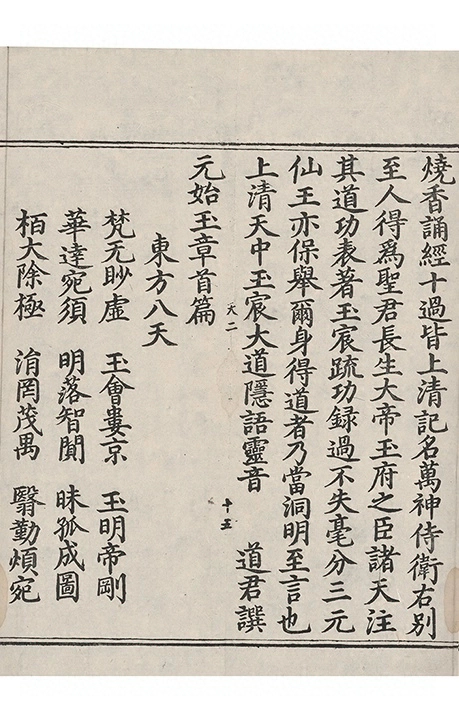 燒香誦經十過皆上清記名萬神侍衛右別
至人得爲聖君長生大帝玉府之臣諸天注
其道功表著玉宸䟽功録過不失毫分三元
仙王亦保舉爾身得道者乃當洞明至言也
上清天中玉宸大道隱語靈音　道君譔
天二　十五
元始玉章首篇
東方八天
梵无眇虛　玉會婁京　玉明帝剛
華達宛須　明落智聞　昧孤成圖
栢大除極　洧罔茂禺　翳勤煩宛